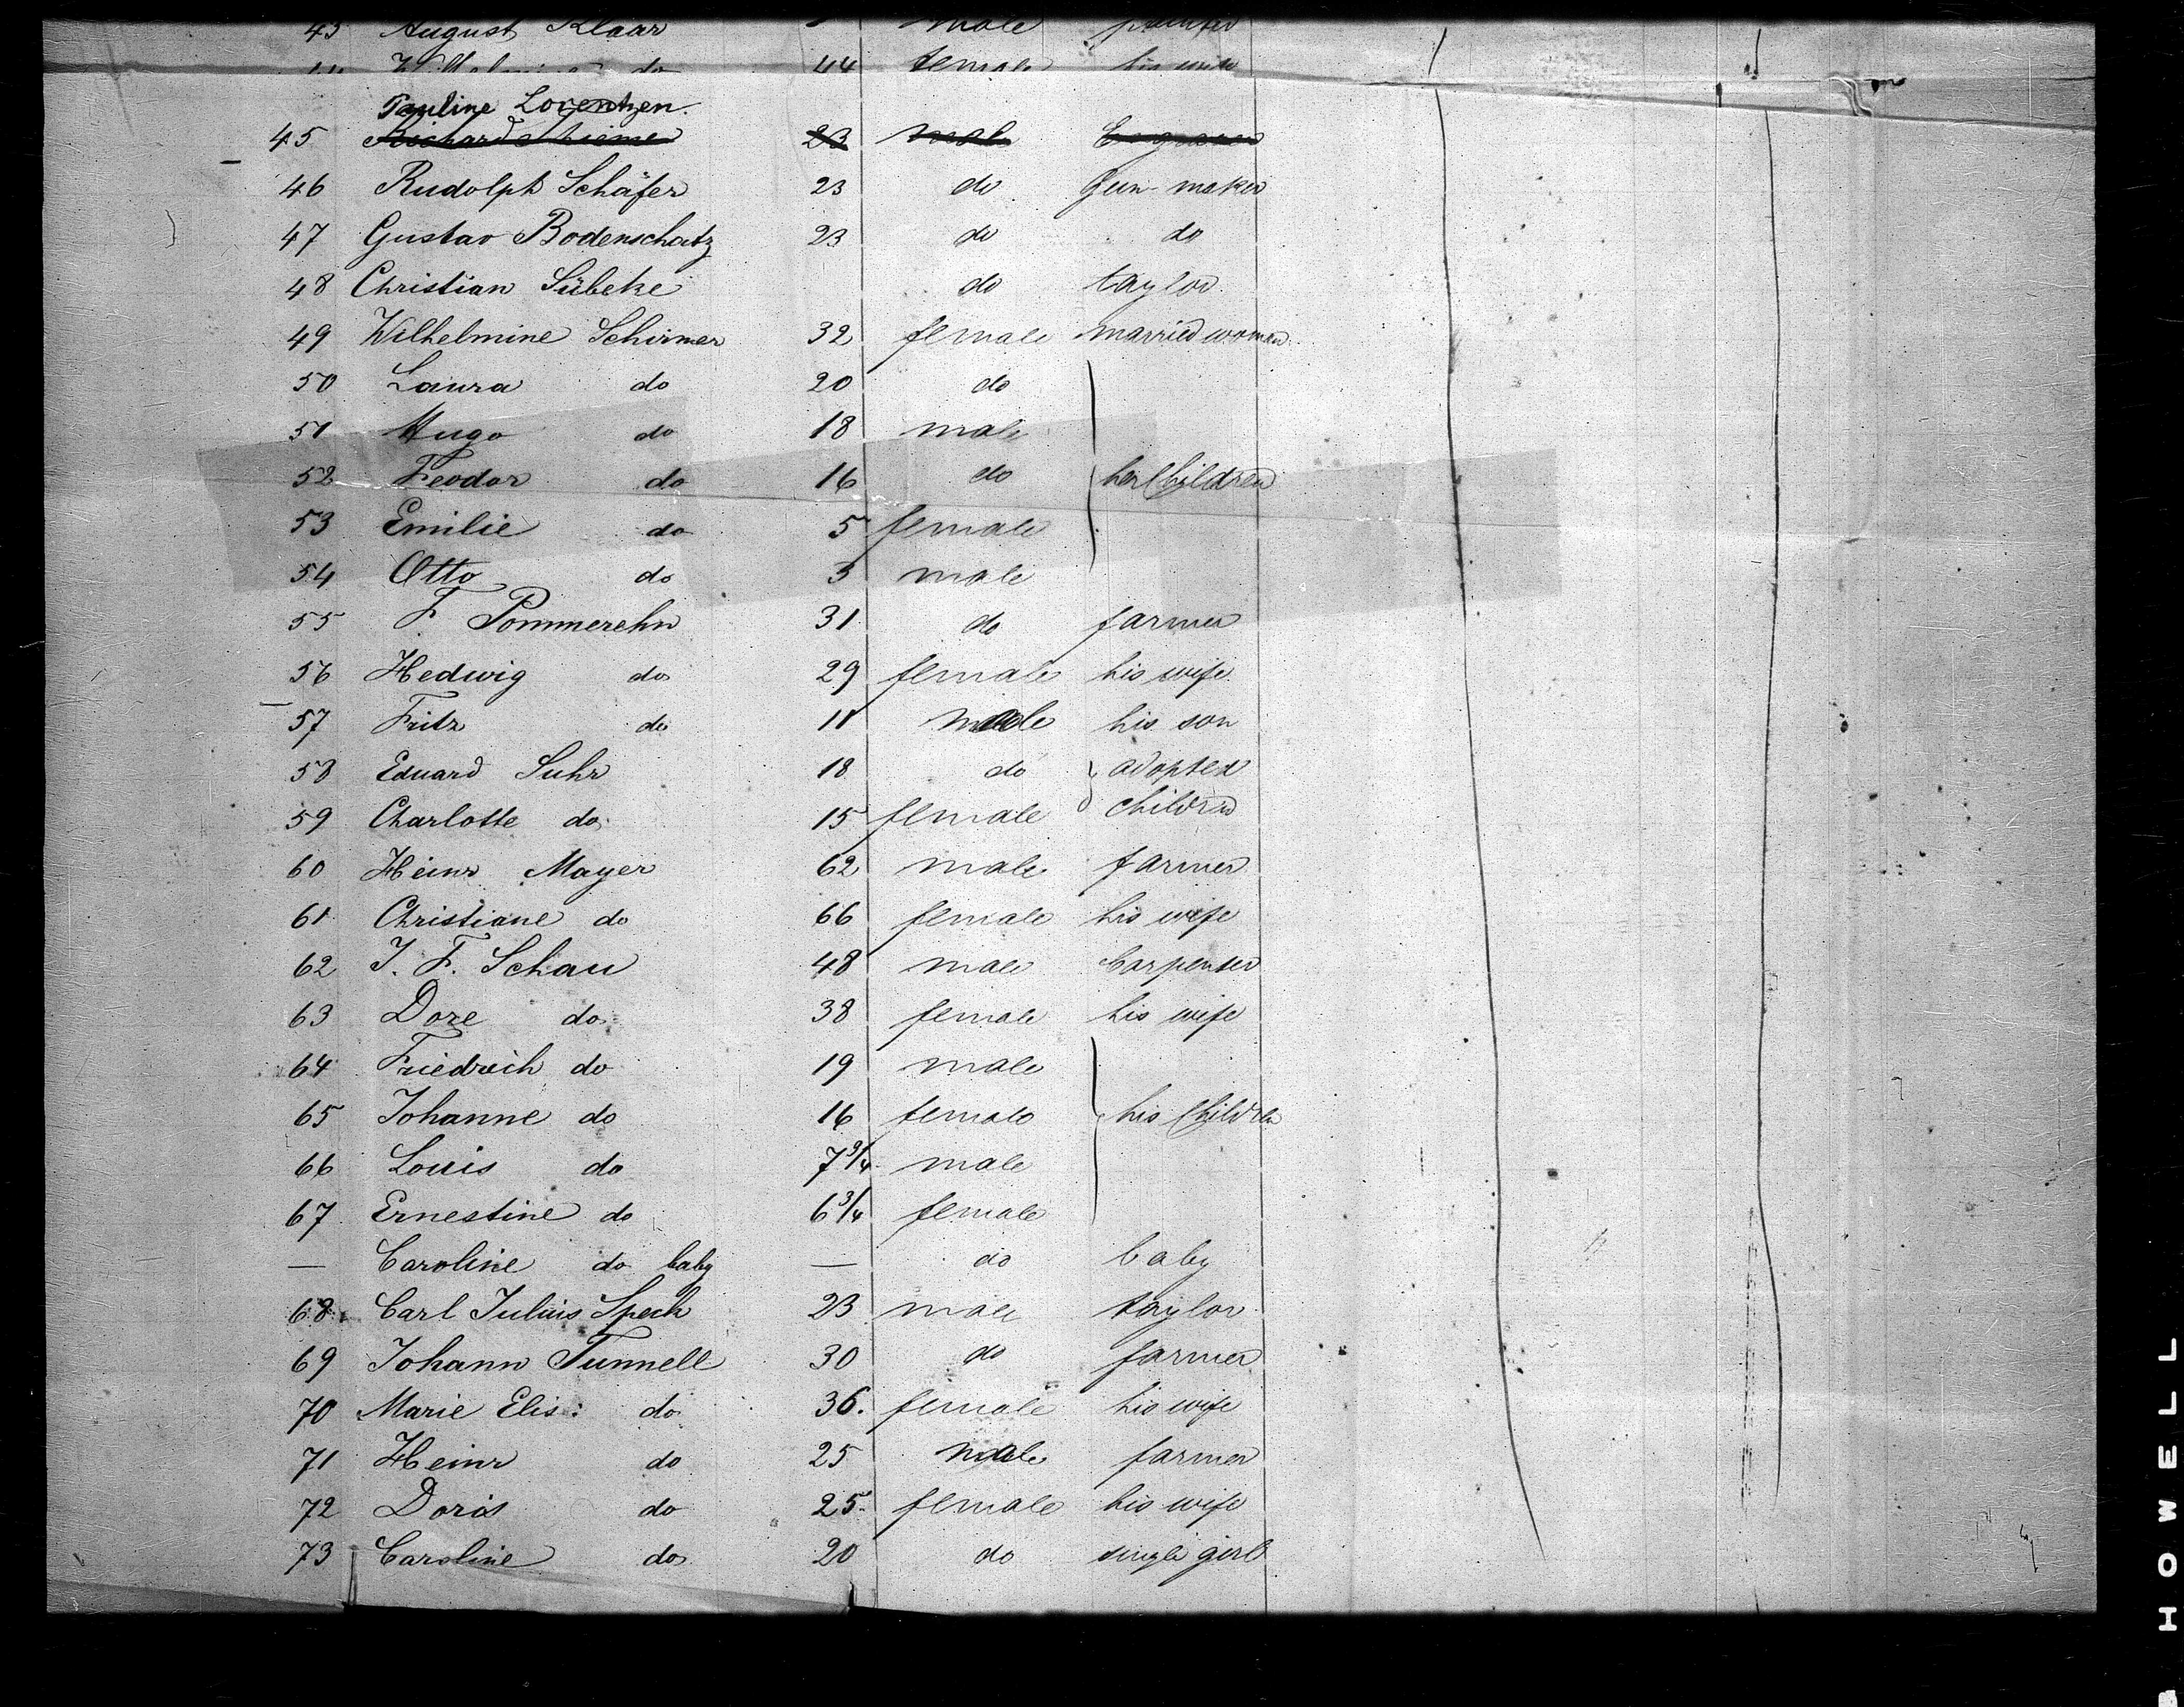 43 August Klaar male
44 do 44 female his wife
Pauline Lorentzen.
45 Richard 23 male
46 Rudolph Schäfer 23 do Gun-maker
47 Gustav Bodenschatz 23 do do
48 Christian Lübeke do taylor.
49 Wilhelmine Schirmer 32 female married woman
50 Laura do 20 do
51 Hugo do 18 male
52 Feodor do 16 do her Children
53 Emilie do 5 female
54 Otto do 3 male
55 F Pommerehn 31 do farmer
56 Hedwig do 29 female his wife
57 Fritz do 11 male his son
58 Eduard Suhr 18 do adopted
59 Charlotte do 15 female children
60 Heinr Mayer 62 male farmer
61 Christiane do 66 female his wife
62 J. F. Schau 48 male Carpenter
63 Dore do 38 female his wife
64 Friedrich do 19 male
65 Johanne do 16 female his Children
66 Louis do 7 3/4 male
67 Ernestine do 6 3/4 female
— Caroline do baby — do baby
68 Carl Julius Speck 23 male taylor
69 Johann Tunnell 30 do farmer
70 Marie Elis: do 36. female his wife
71 Heinr do 25 male farmer
72 Doris do 25. female his wife
73 Caroline do 20 do single girl
HOWELL